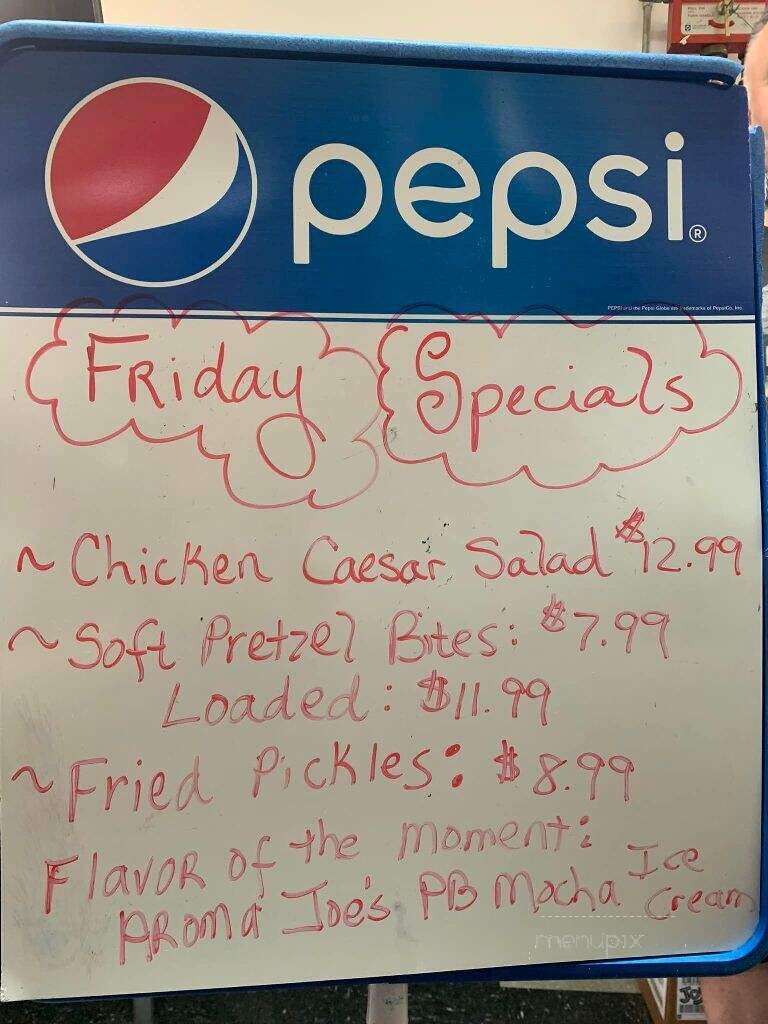 pepsi®
PEPSI and the Pepsi Globe are trademarks of PepsiCo, Inc.
FRiday Specials
~ Chicken Caesar Salad $12.99
~ Soft Pretzel Bites: $7.99
Loaded: $11.99
~ Fried Pickles: $8.99
FlavoR of the moment:
ARoma Joe's PB Mocha Ice Cream
menupix